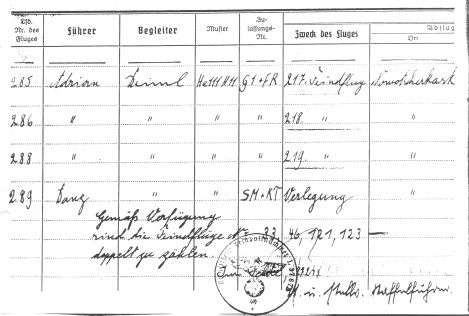 Lfd. Nr. des Fluges Führer Begleiter Muster Zulassungs-Nr. Zweck des Fluges Abflug
Ort
285 Adrian He 111 H 11 G1+FR 217. Feindflug
286 " " " 218. " "
288 " " " 219. " "
289 " " SM+KT Verlegung "
Gemäß Verfügung
sind die Feindflüge Nr. 33, 46, 121, 123 —
doppelt zu zählen.
u. stellv. Staffelführer.